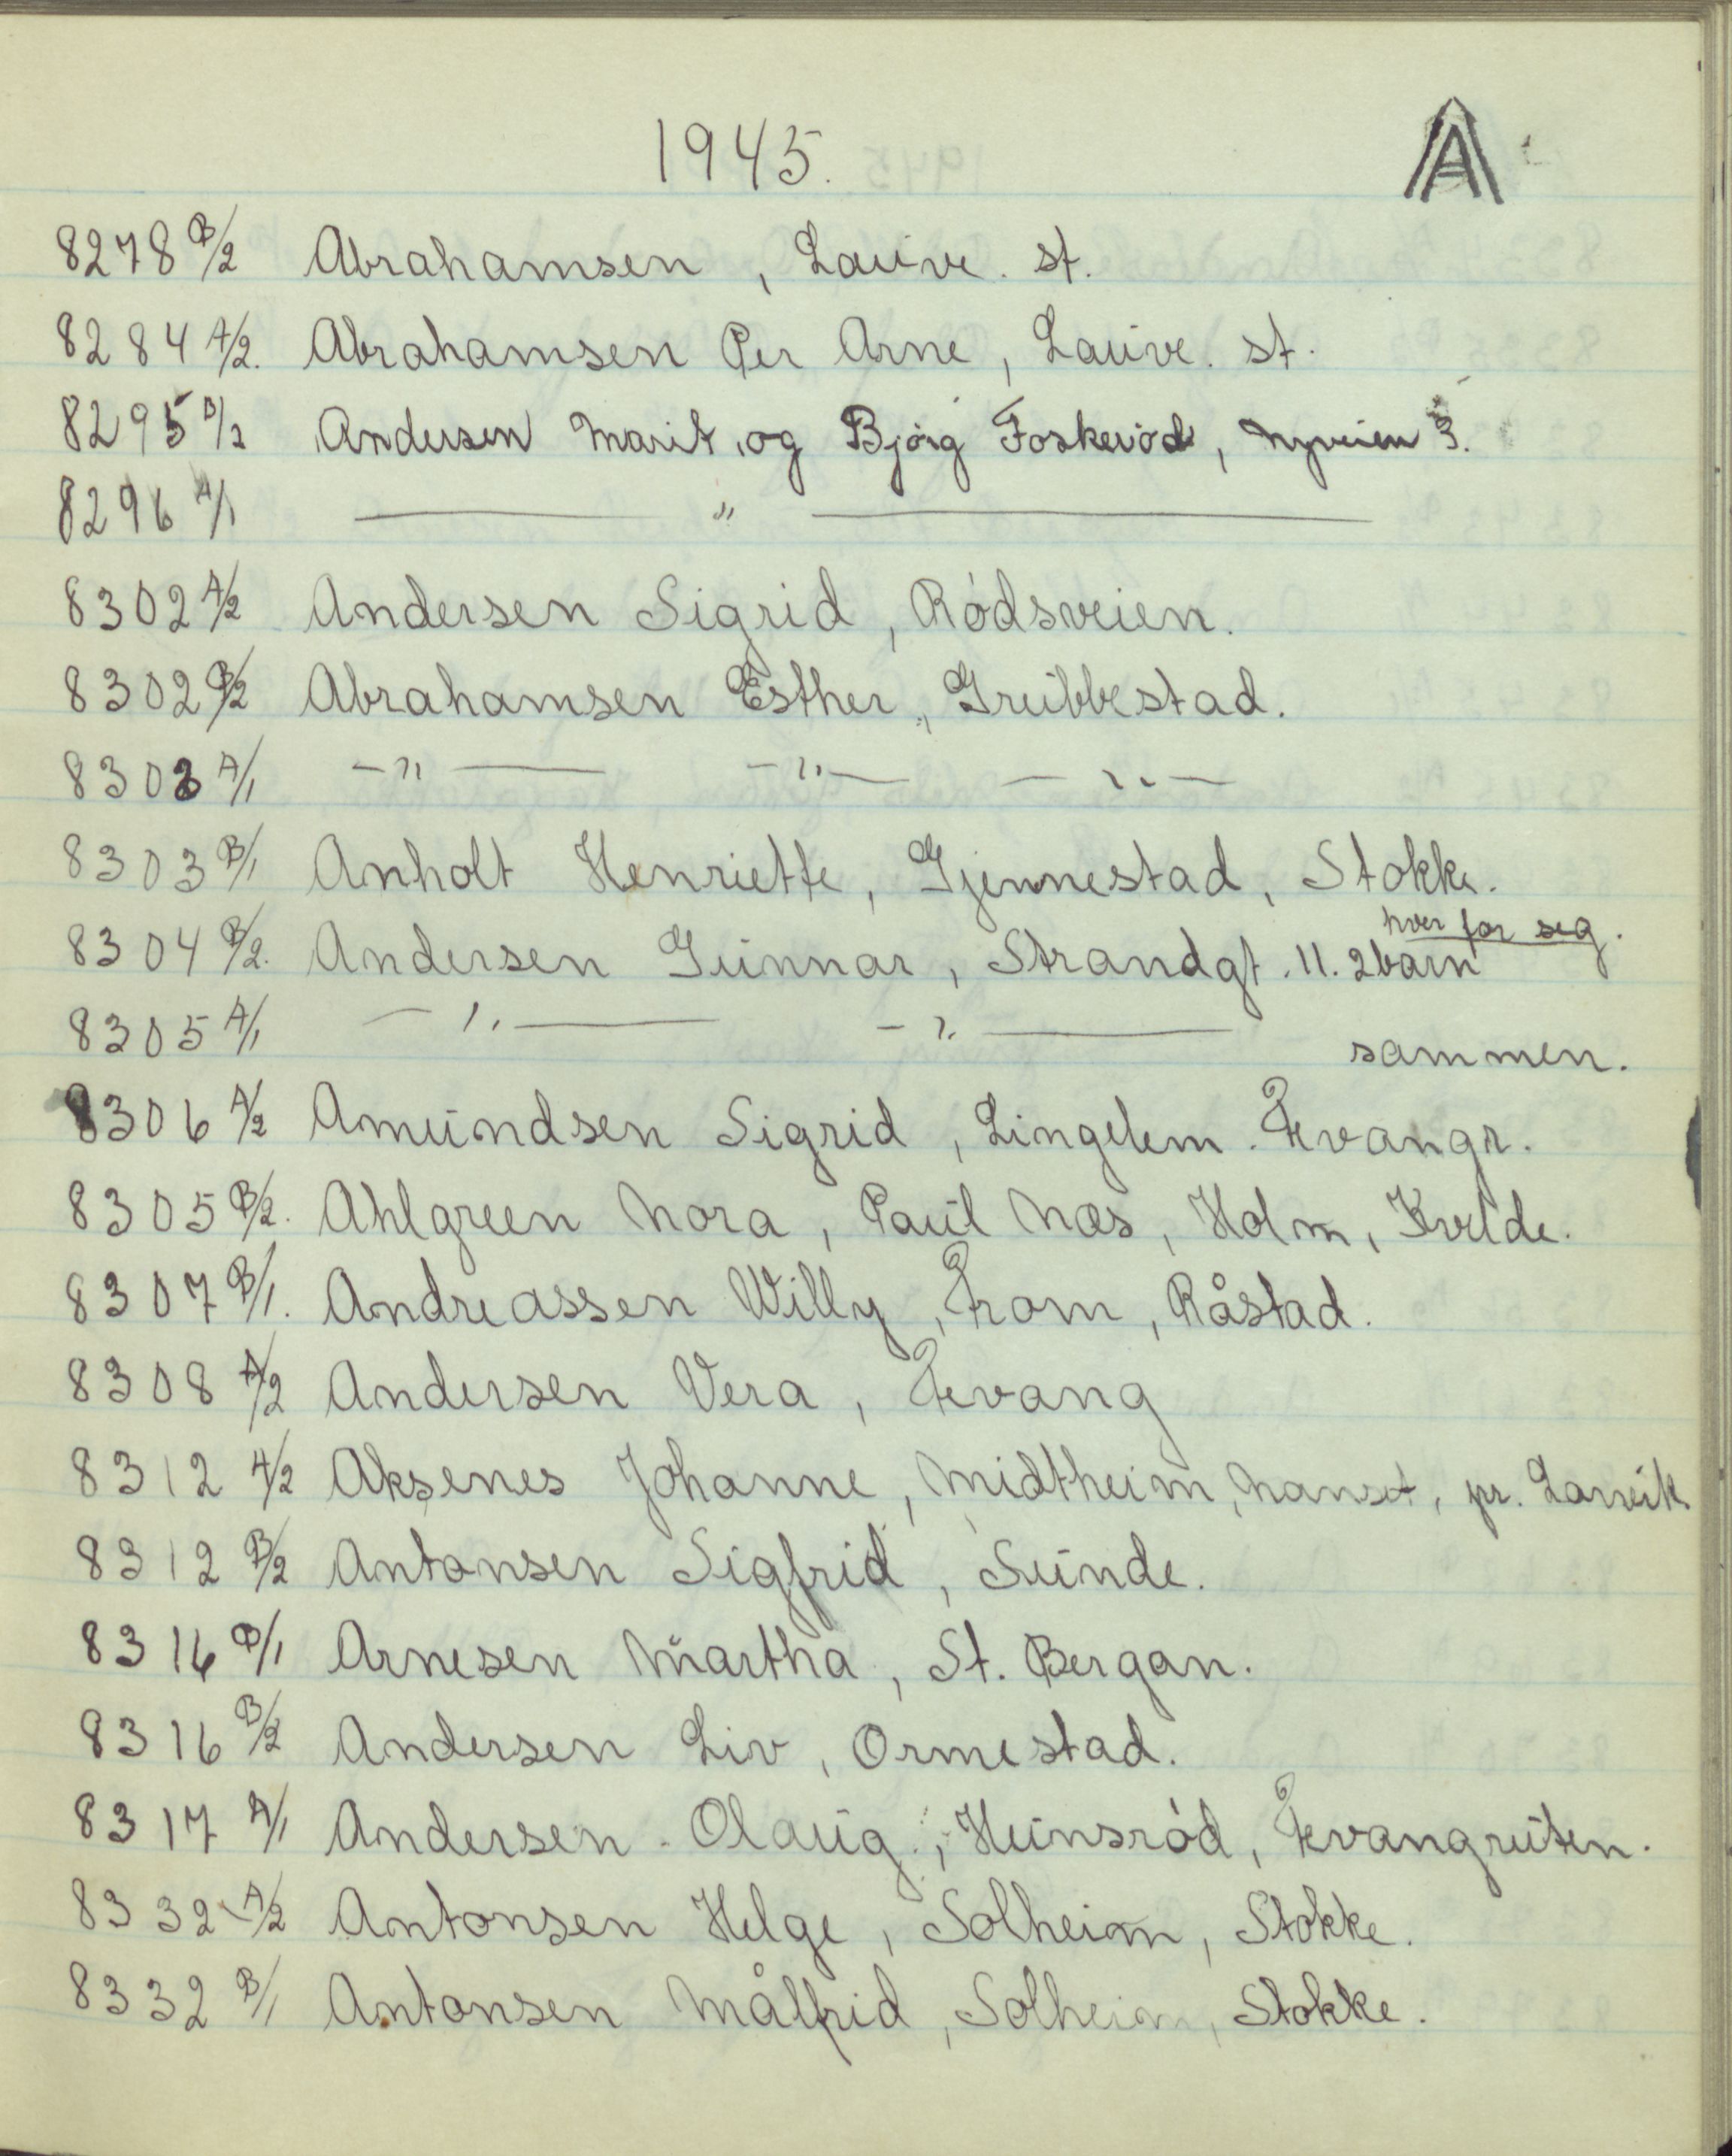 1945.
A
8278 B/2 Abrahamsen , Lauve. st.
8284 A/2. Abrahamsen Per Arne, Lauve. st.
8295 B/2 Andersen Marit og Bjørg Foskerød, Nyveien 3.
8296 A/1 — " —
8302 A/2 Andersen Sigrid, Rødsveien.
8302 B/2 Abrahamsen Esther, Grubbestad.
8303 A/1 — " — — " — — " —
8303 B/1 Anholt Henriette, Gjennestad, Stokke.
hver for seg.
8304 B/2. Andersen Gunnar, Strandgt. 11. 2 barn
8305 A/1 — " — — " — sammen.
8306 A/2 Amundsen Sigrid, Lingelem. Fevangr.
8305 B/2. Ahlgreen Nora, Paul Næs, Holm, Kvelde.
8307 B/1. Andreassen Willy, From, Råstad.
8308 A/2 Andersen Vera, Fevang
8312 A/2 Aksenes Johanne, Midtheim, Nanset, pr. Larvik.
8312 B/2 Antonsen Sigfrid, Sunde.
8316 B/1 Arnesen Martha, St. Bergan.
8316 B/2 Andersen Liv, Ormestad.
8317 A/1 Andersen Olaug, Hunsrød, Fevangruten.
8332 A/2 Antonsen Helge, Solheim, Stokke.
8332 B/1 Antonsen Målfrid, Solheim, Stokke.